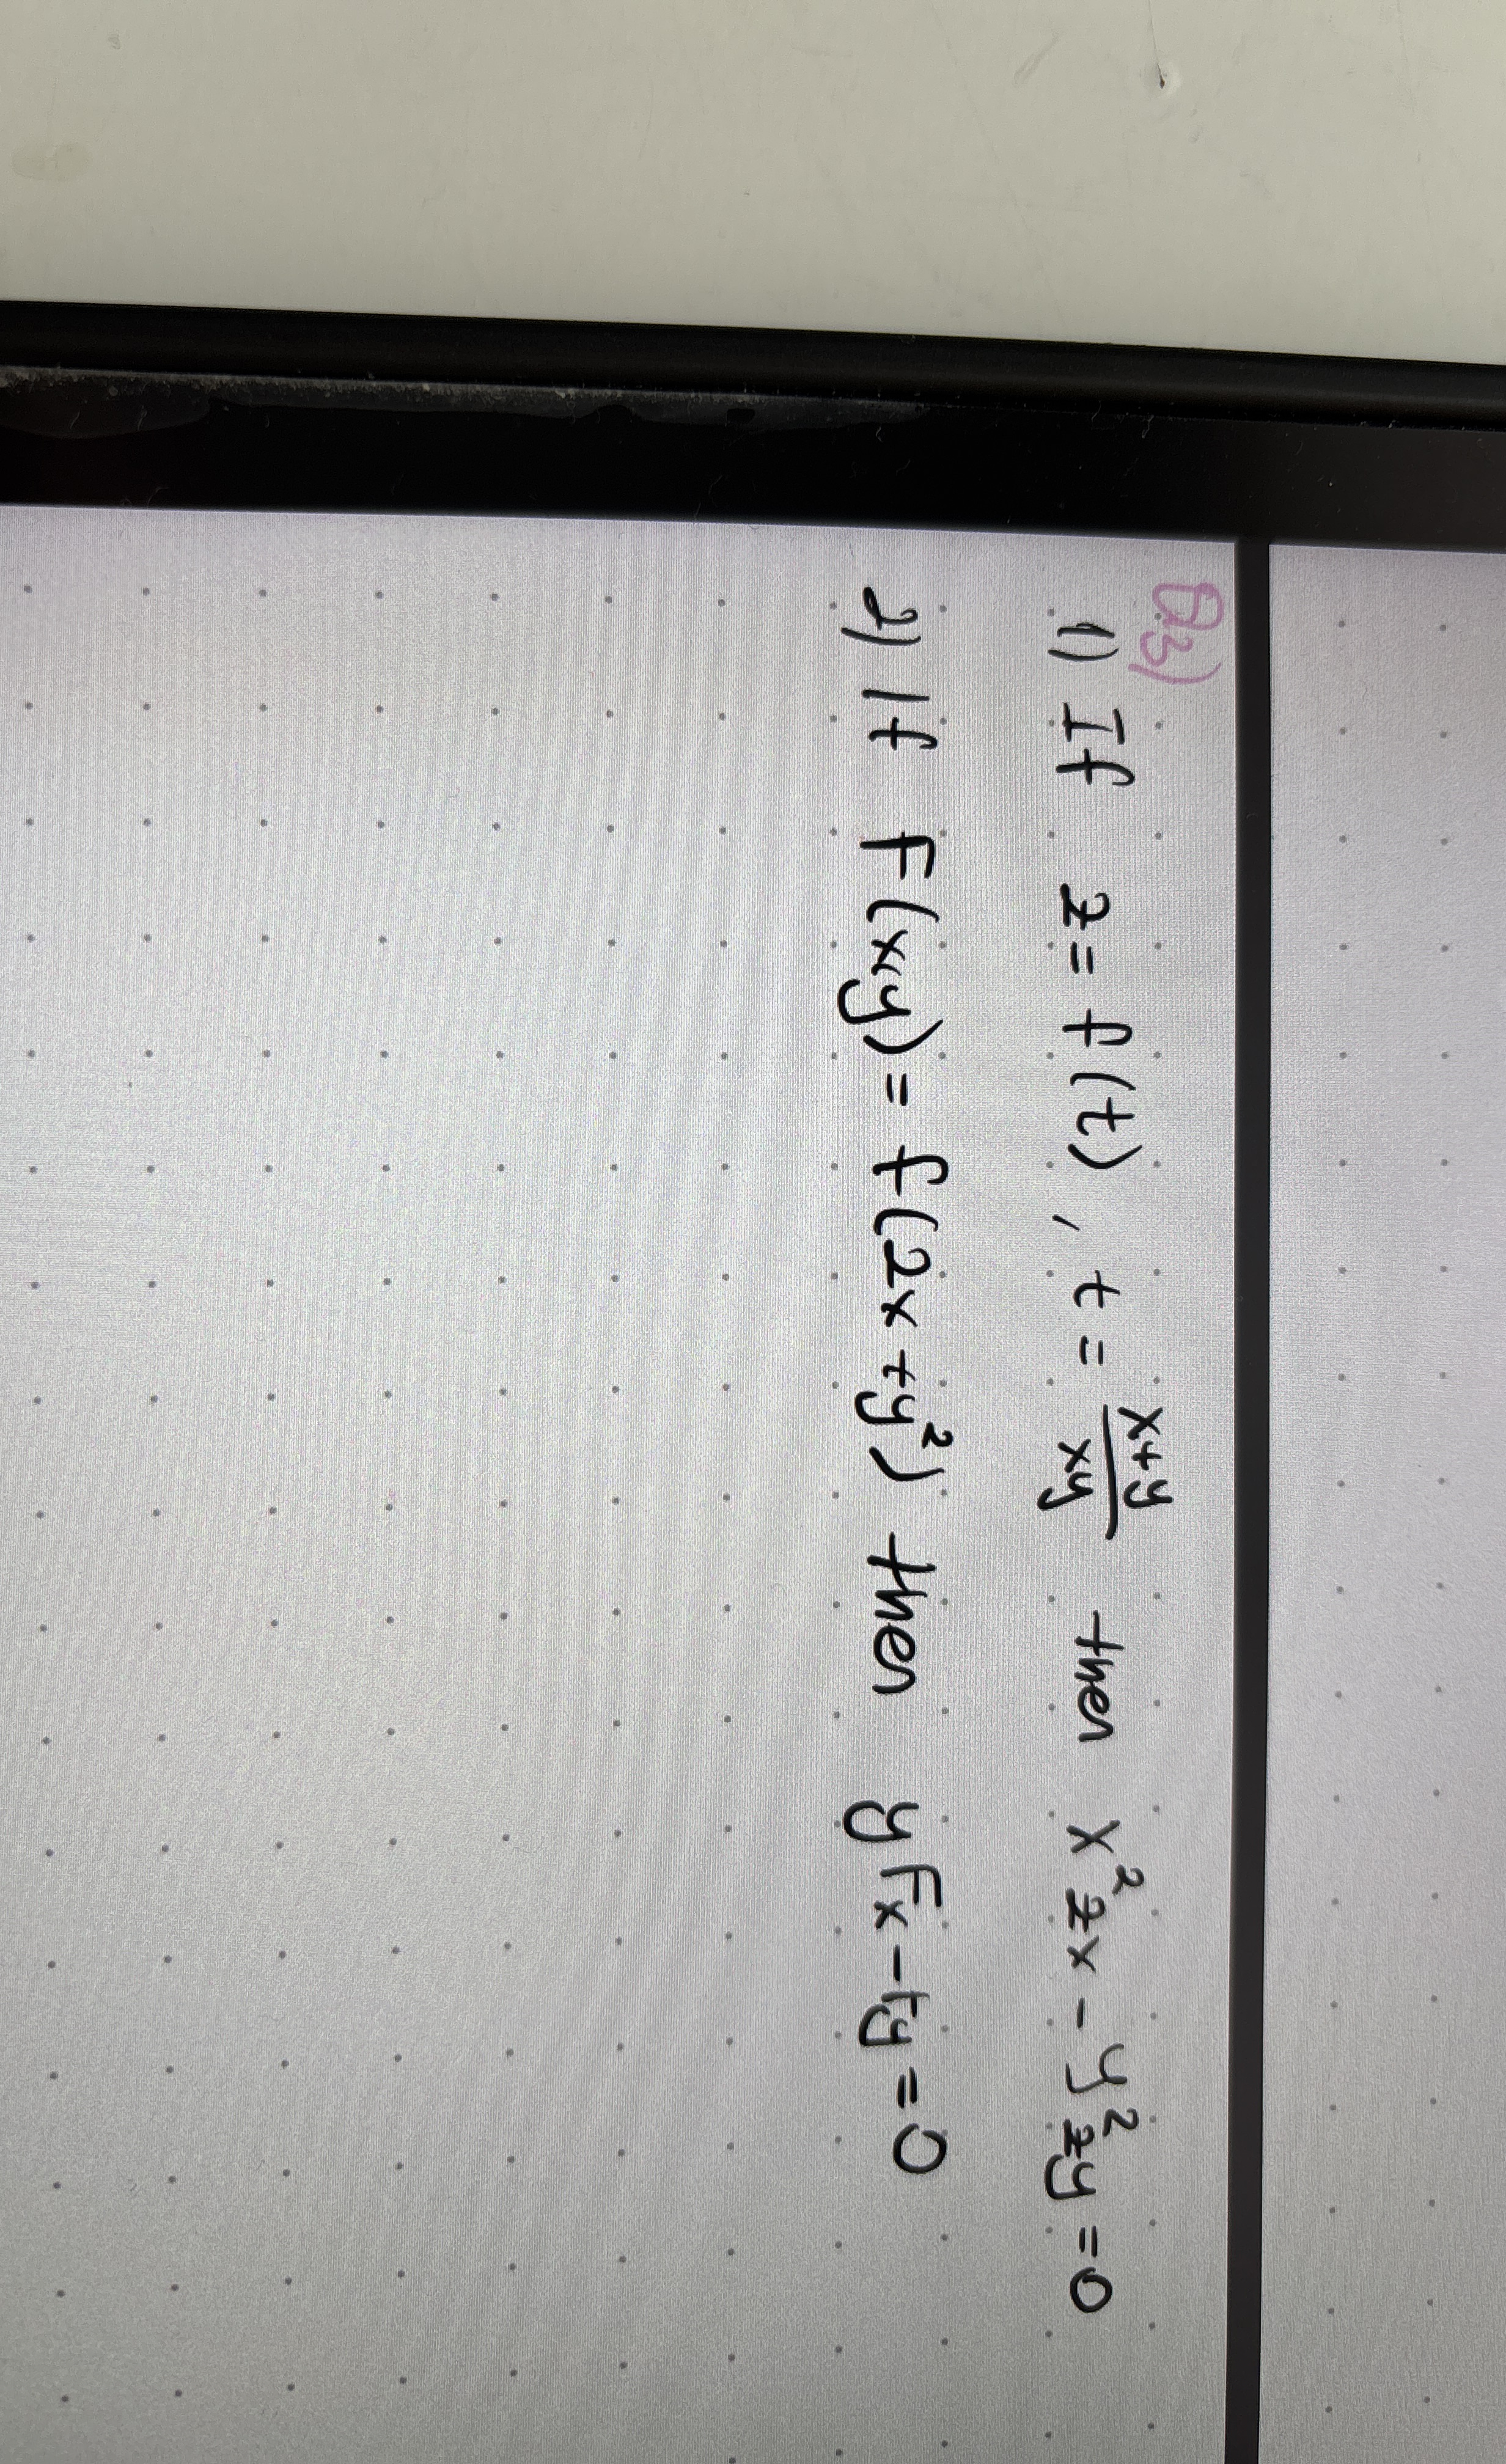 Q3)
1) If z = f(t), t = x+y/xy then x²zx - y²zy = 0
2) If F(x,y) = f(2x+y²) then yFx - Fy = 0